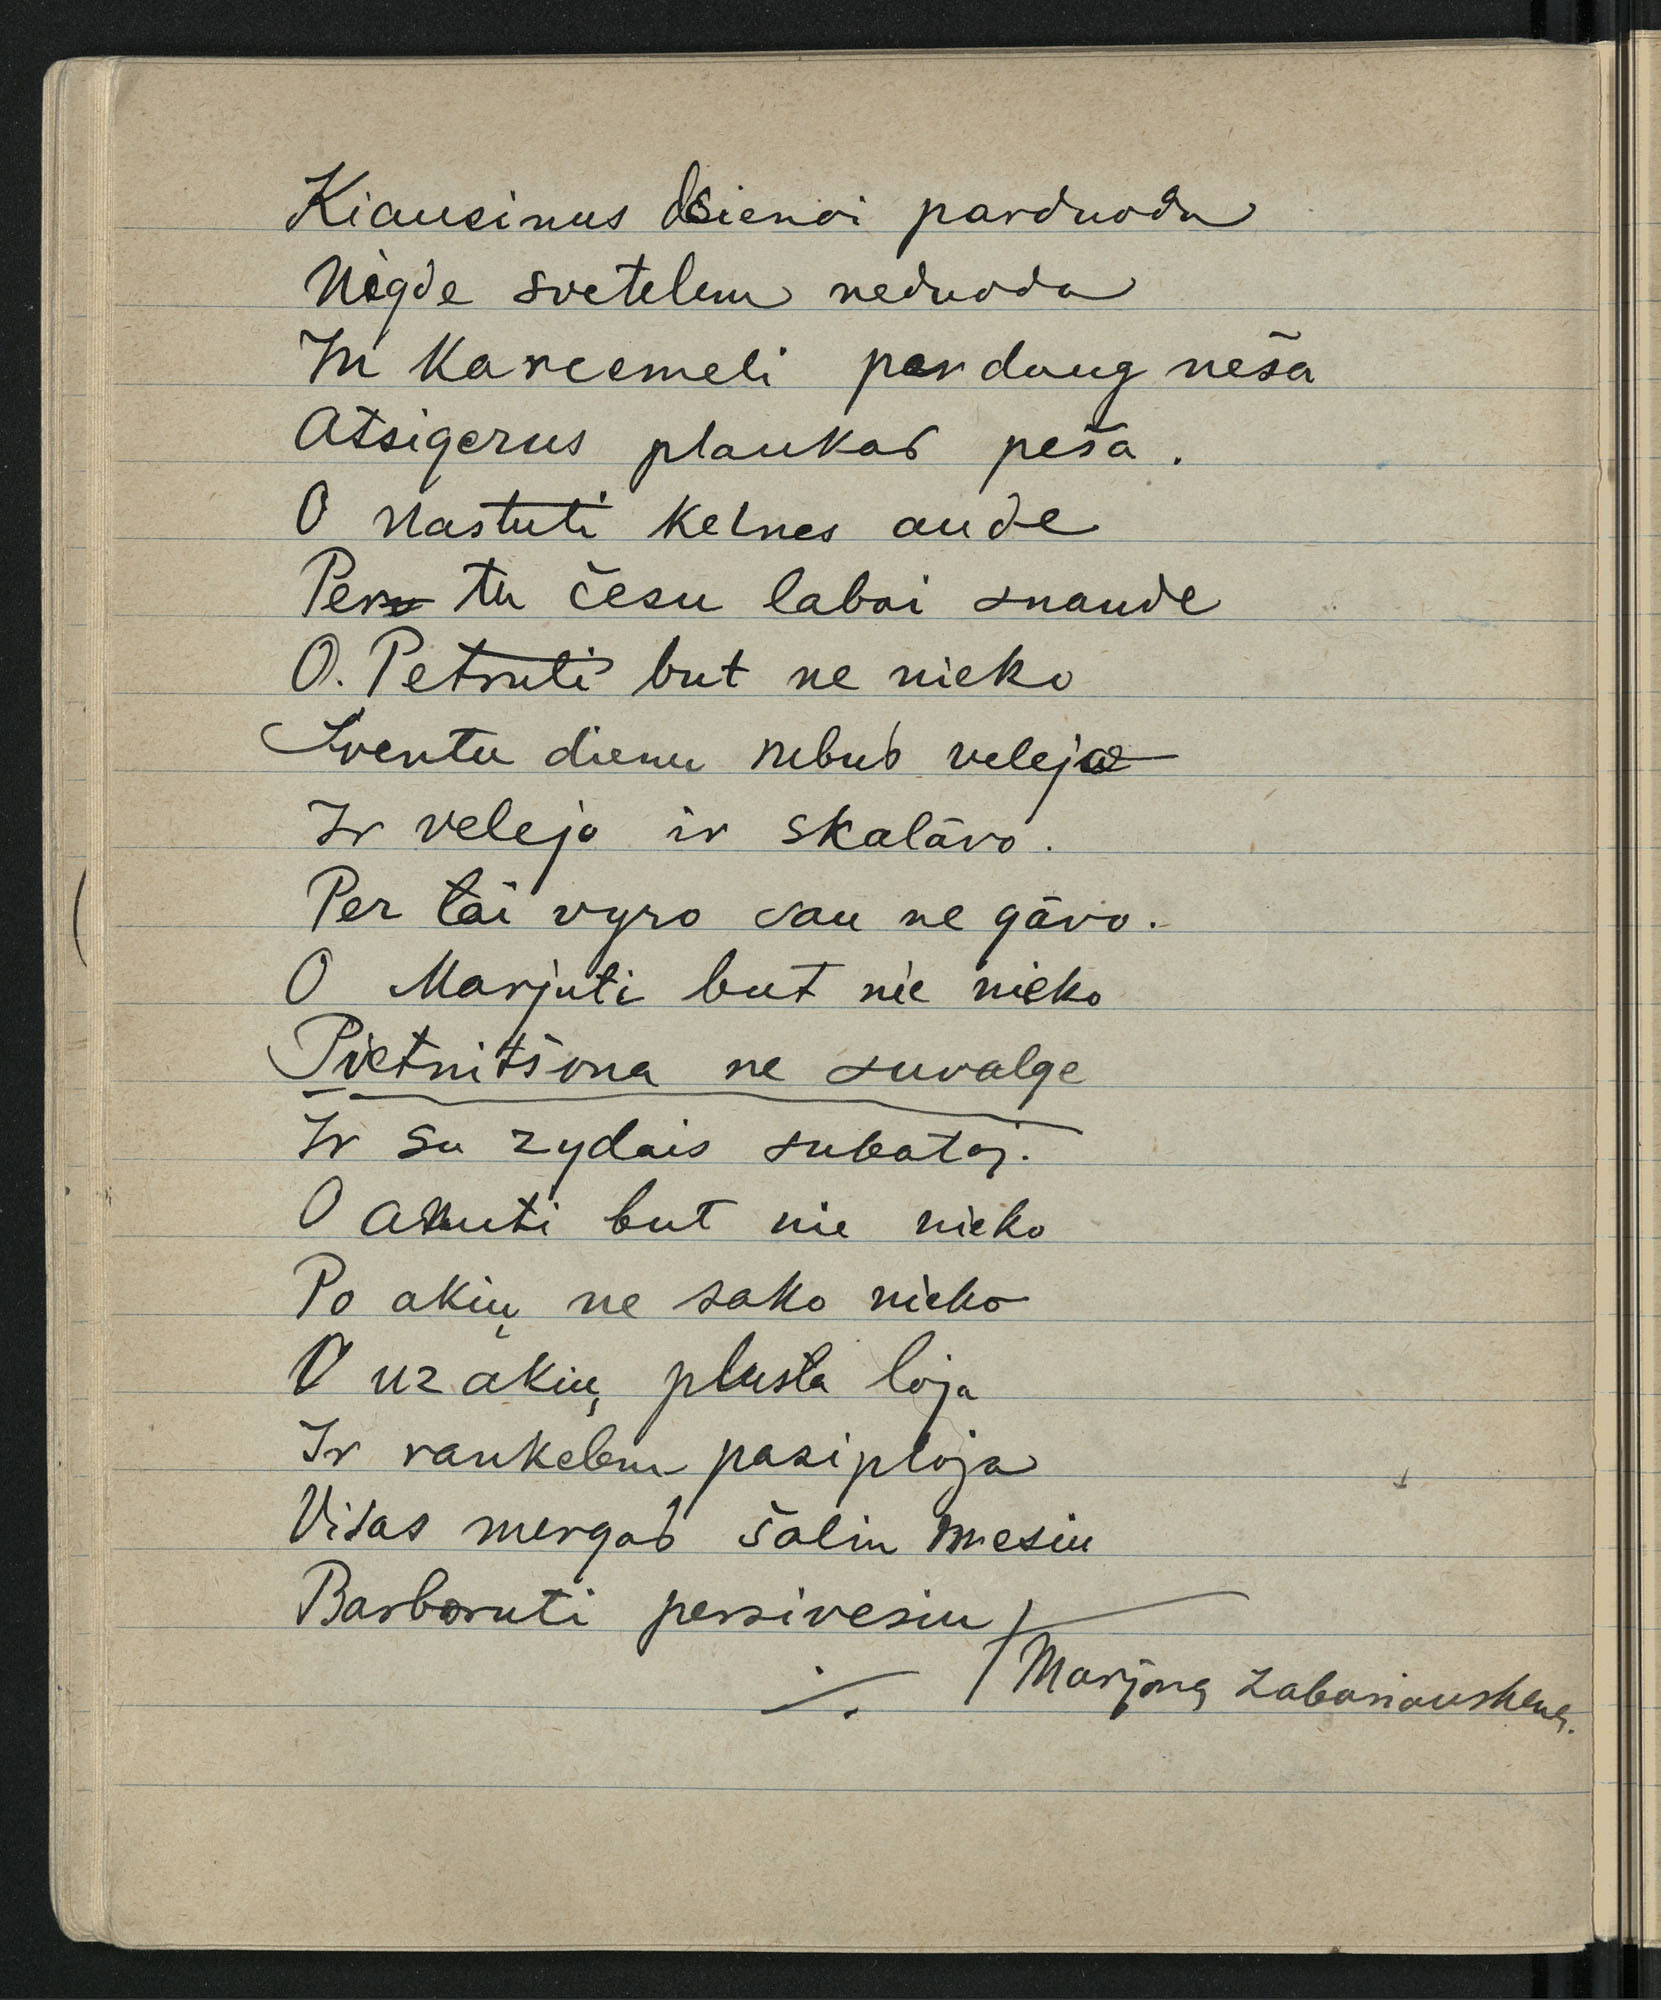 Kiausinus dsienoi parduoda
Nigde svetelem neduoda
In karcemeli perdaug neša
Atsigerus plaukas peša.
O Nastuti kelnes aude
Per tu česu labai snaude
O. Petruti but ne nieko
Sventu dienu nebus velejo
Ir velejo ir skalāvo.
Per tāi vyro sau ne gāvo.
O Marjuti but nie nieko
Pietnitšona ne suvalge
Ir su zydais subatoj.
O Anuti but nie nieko
Po akių ne sako nieko
O uz akių plusta loja
Ir rankelem pasiploja
Visas mergas šalin mesiu
Barboruti persivesiu
Marjona Zabariauskene.